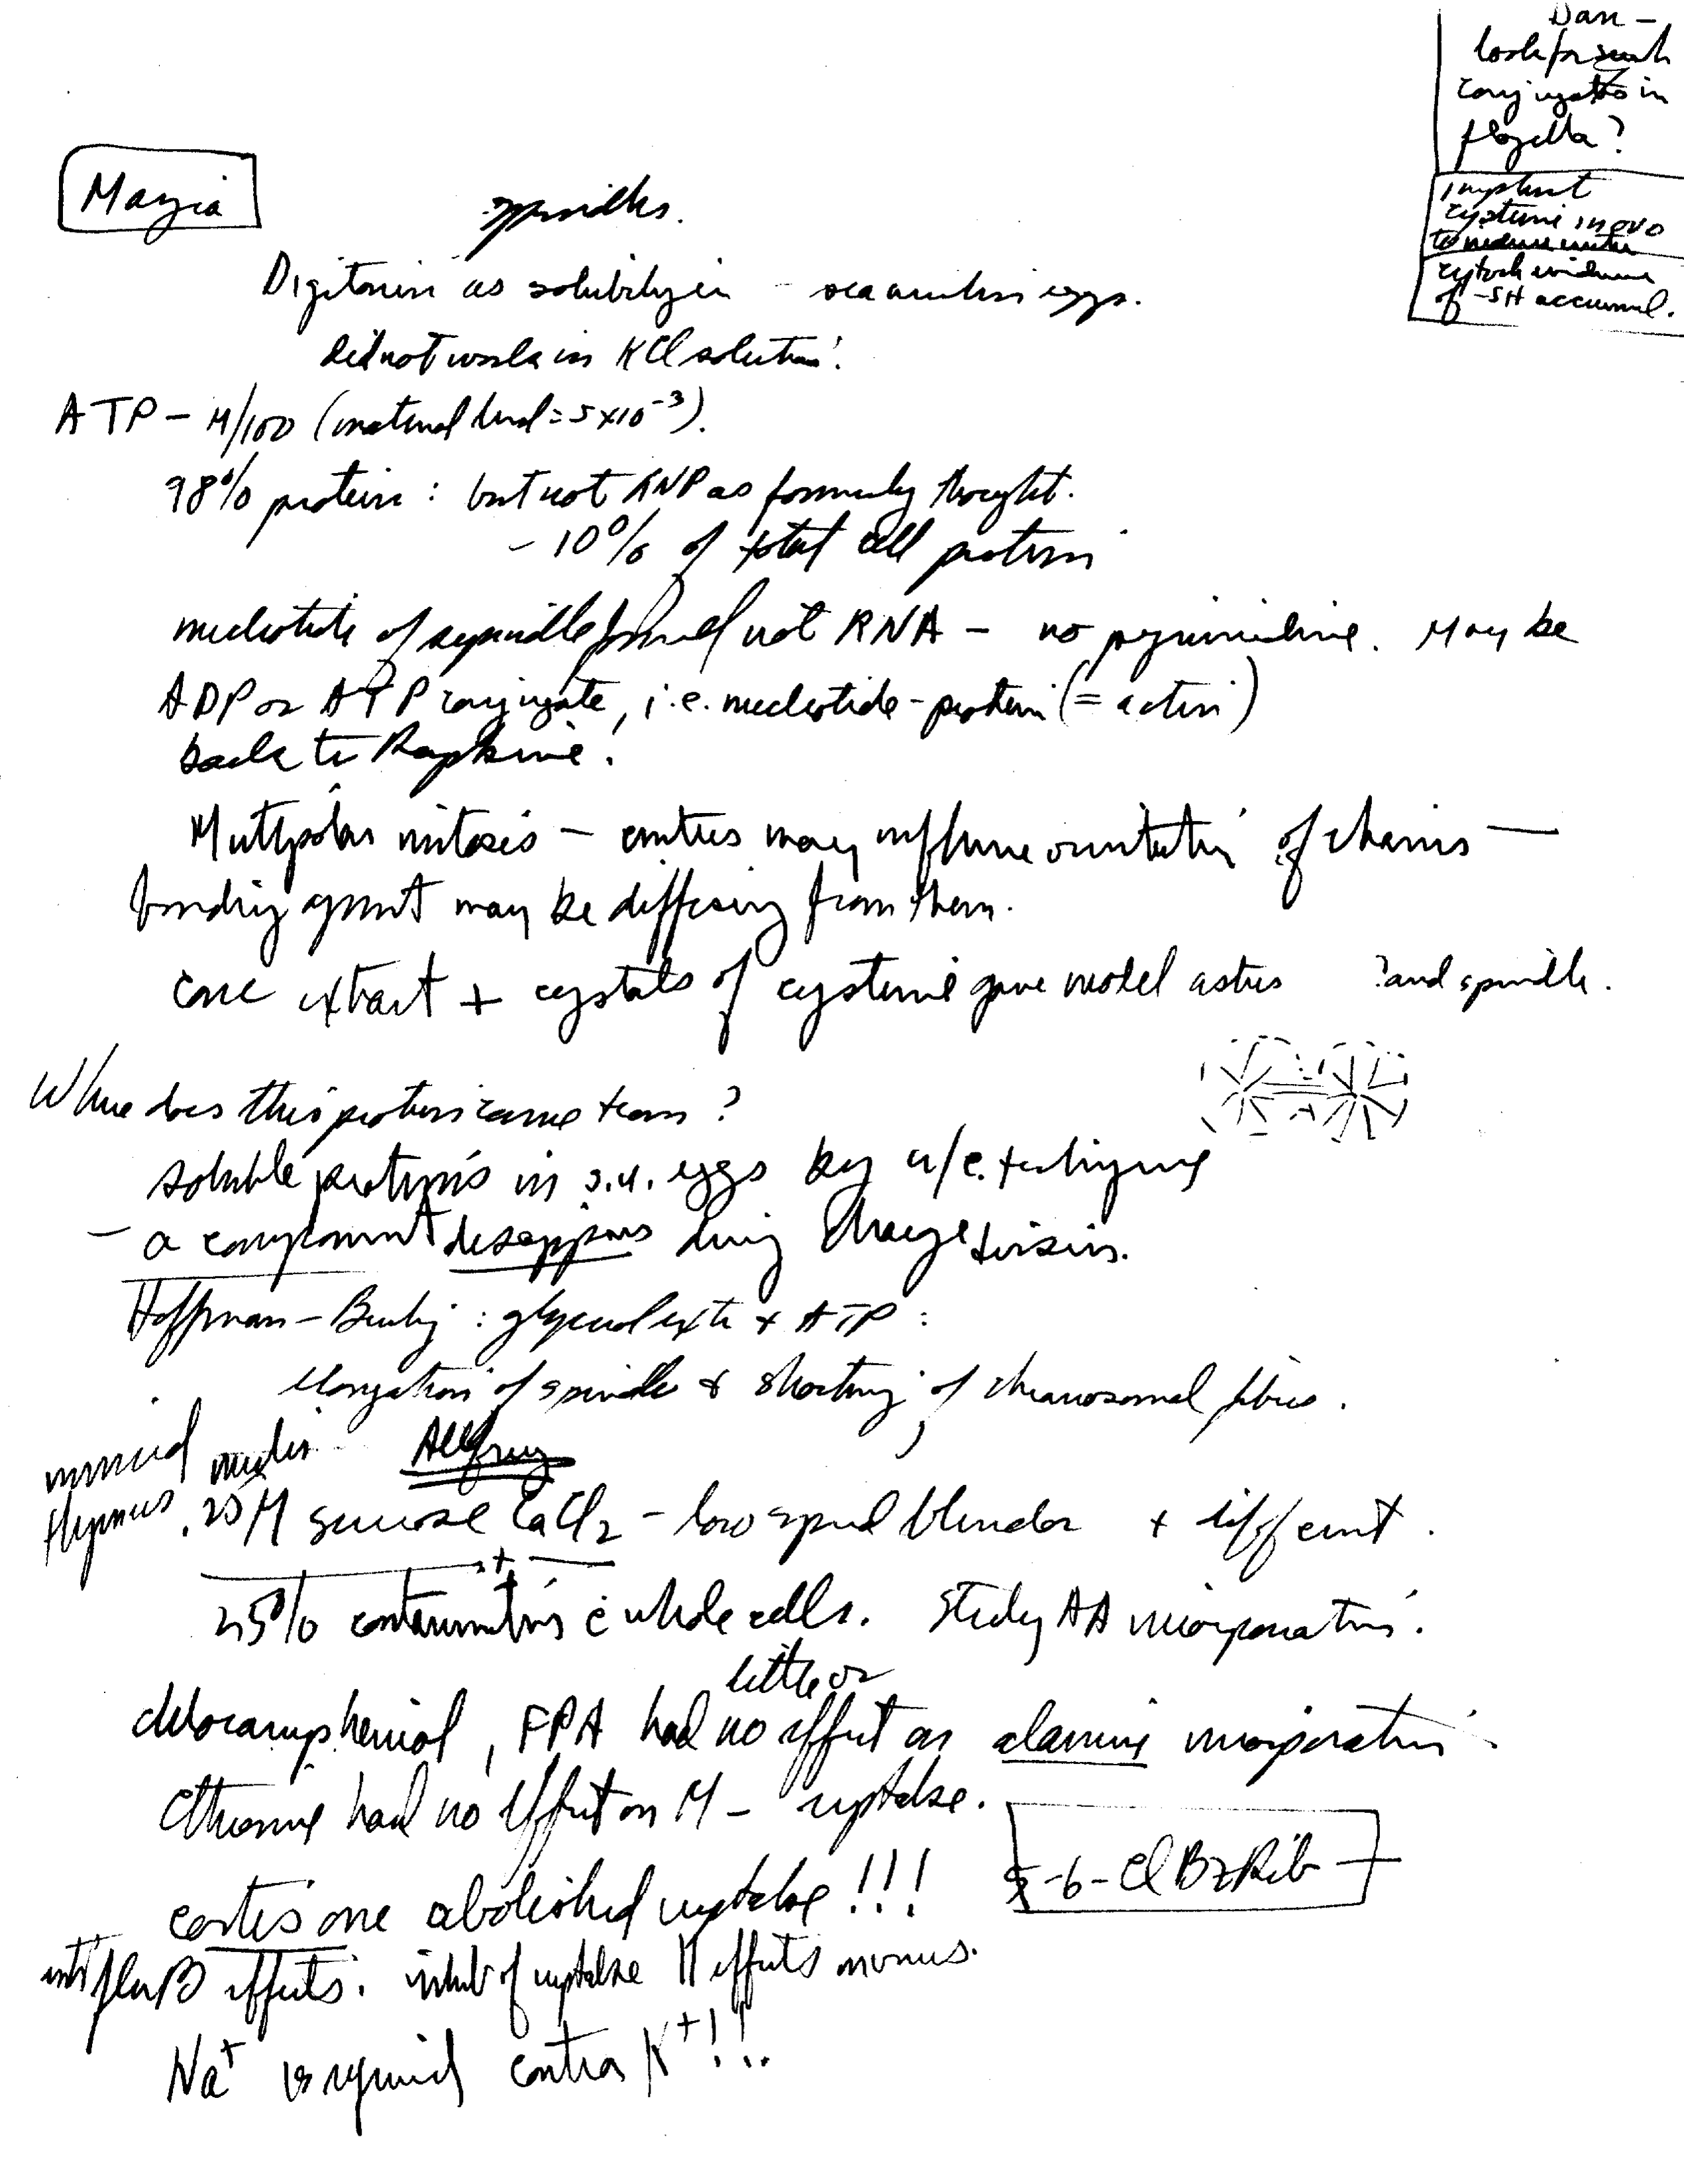 Dan –
look for such
conjugates in
flagella?
implant
cysteine in ovo
cytoch evidence
of -SH accumul.
Mazia
spindles.
Digitonin as solubilizer – sea urchin eggs.
did not work in KCl solution!
ATP – M/100 (natural level = 5 x 10⁻³).
98% protein : but not RNP as formerly thought.
– 10% of total cell protein
nucleotide of spindle found not RNA – no pyrimidine. May be
ADP or ATP conjugate, i.e. nucleotide-protein (= actin)
back to Rapkine!
Multipolar mitosis – centres may influence orientation of chains —
bonding agent may be diffusing from them.
conc extract + crystals of cysteine gave model asters ? and spindle.
Where does this protein come from?
soluble proteins in s.u. eggs by technique
– a component disappears during division.
Hoffman-Berling : glycerol extr + ATP :
elongation of spindle & shorting of chromosomal fibres.
nuclei Allfrey
thymus .25 M sucrose CaCl₂ – low speed blender + diff cent.
± 5% contamination c̄ whole cells. Study AA incorporation.
little or
chloramphenicol, FPA had no effect on alanine incorporation
Ethionine had no effect on M – uptake.
5-6-Cl BzRib
cortisone abolished uptake!!!
anti flu B effects. inhib of uptake || effects on virus.
Na⁺ is required contra K⁺!!!